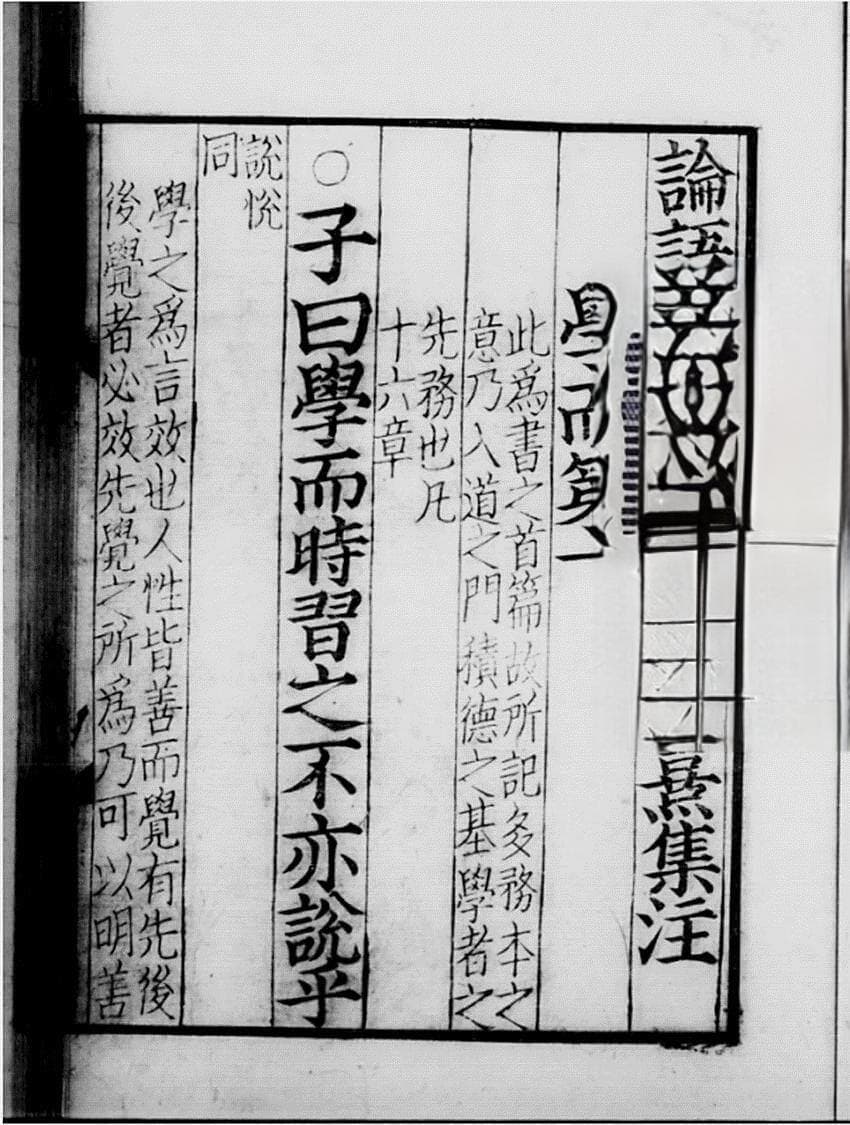 論語熹集注
學而第一
此爲書之首篇故所記多務本之
意乃入道之門積德之基學者之
先務也凡
十六章
○子曰學而時習之不亦說乎
說悅
同
學之爲言效也人性皆善而覺有先後
後覺者必效先覺之所爲乃可以明善